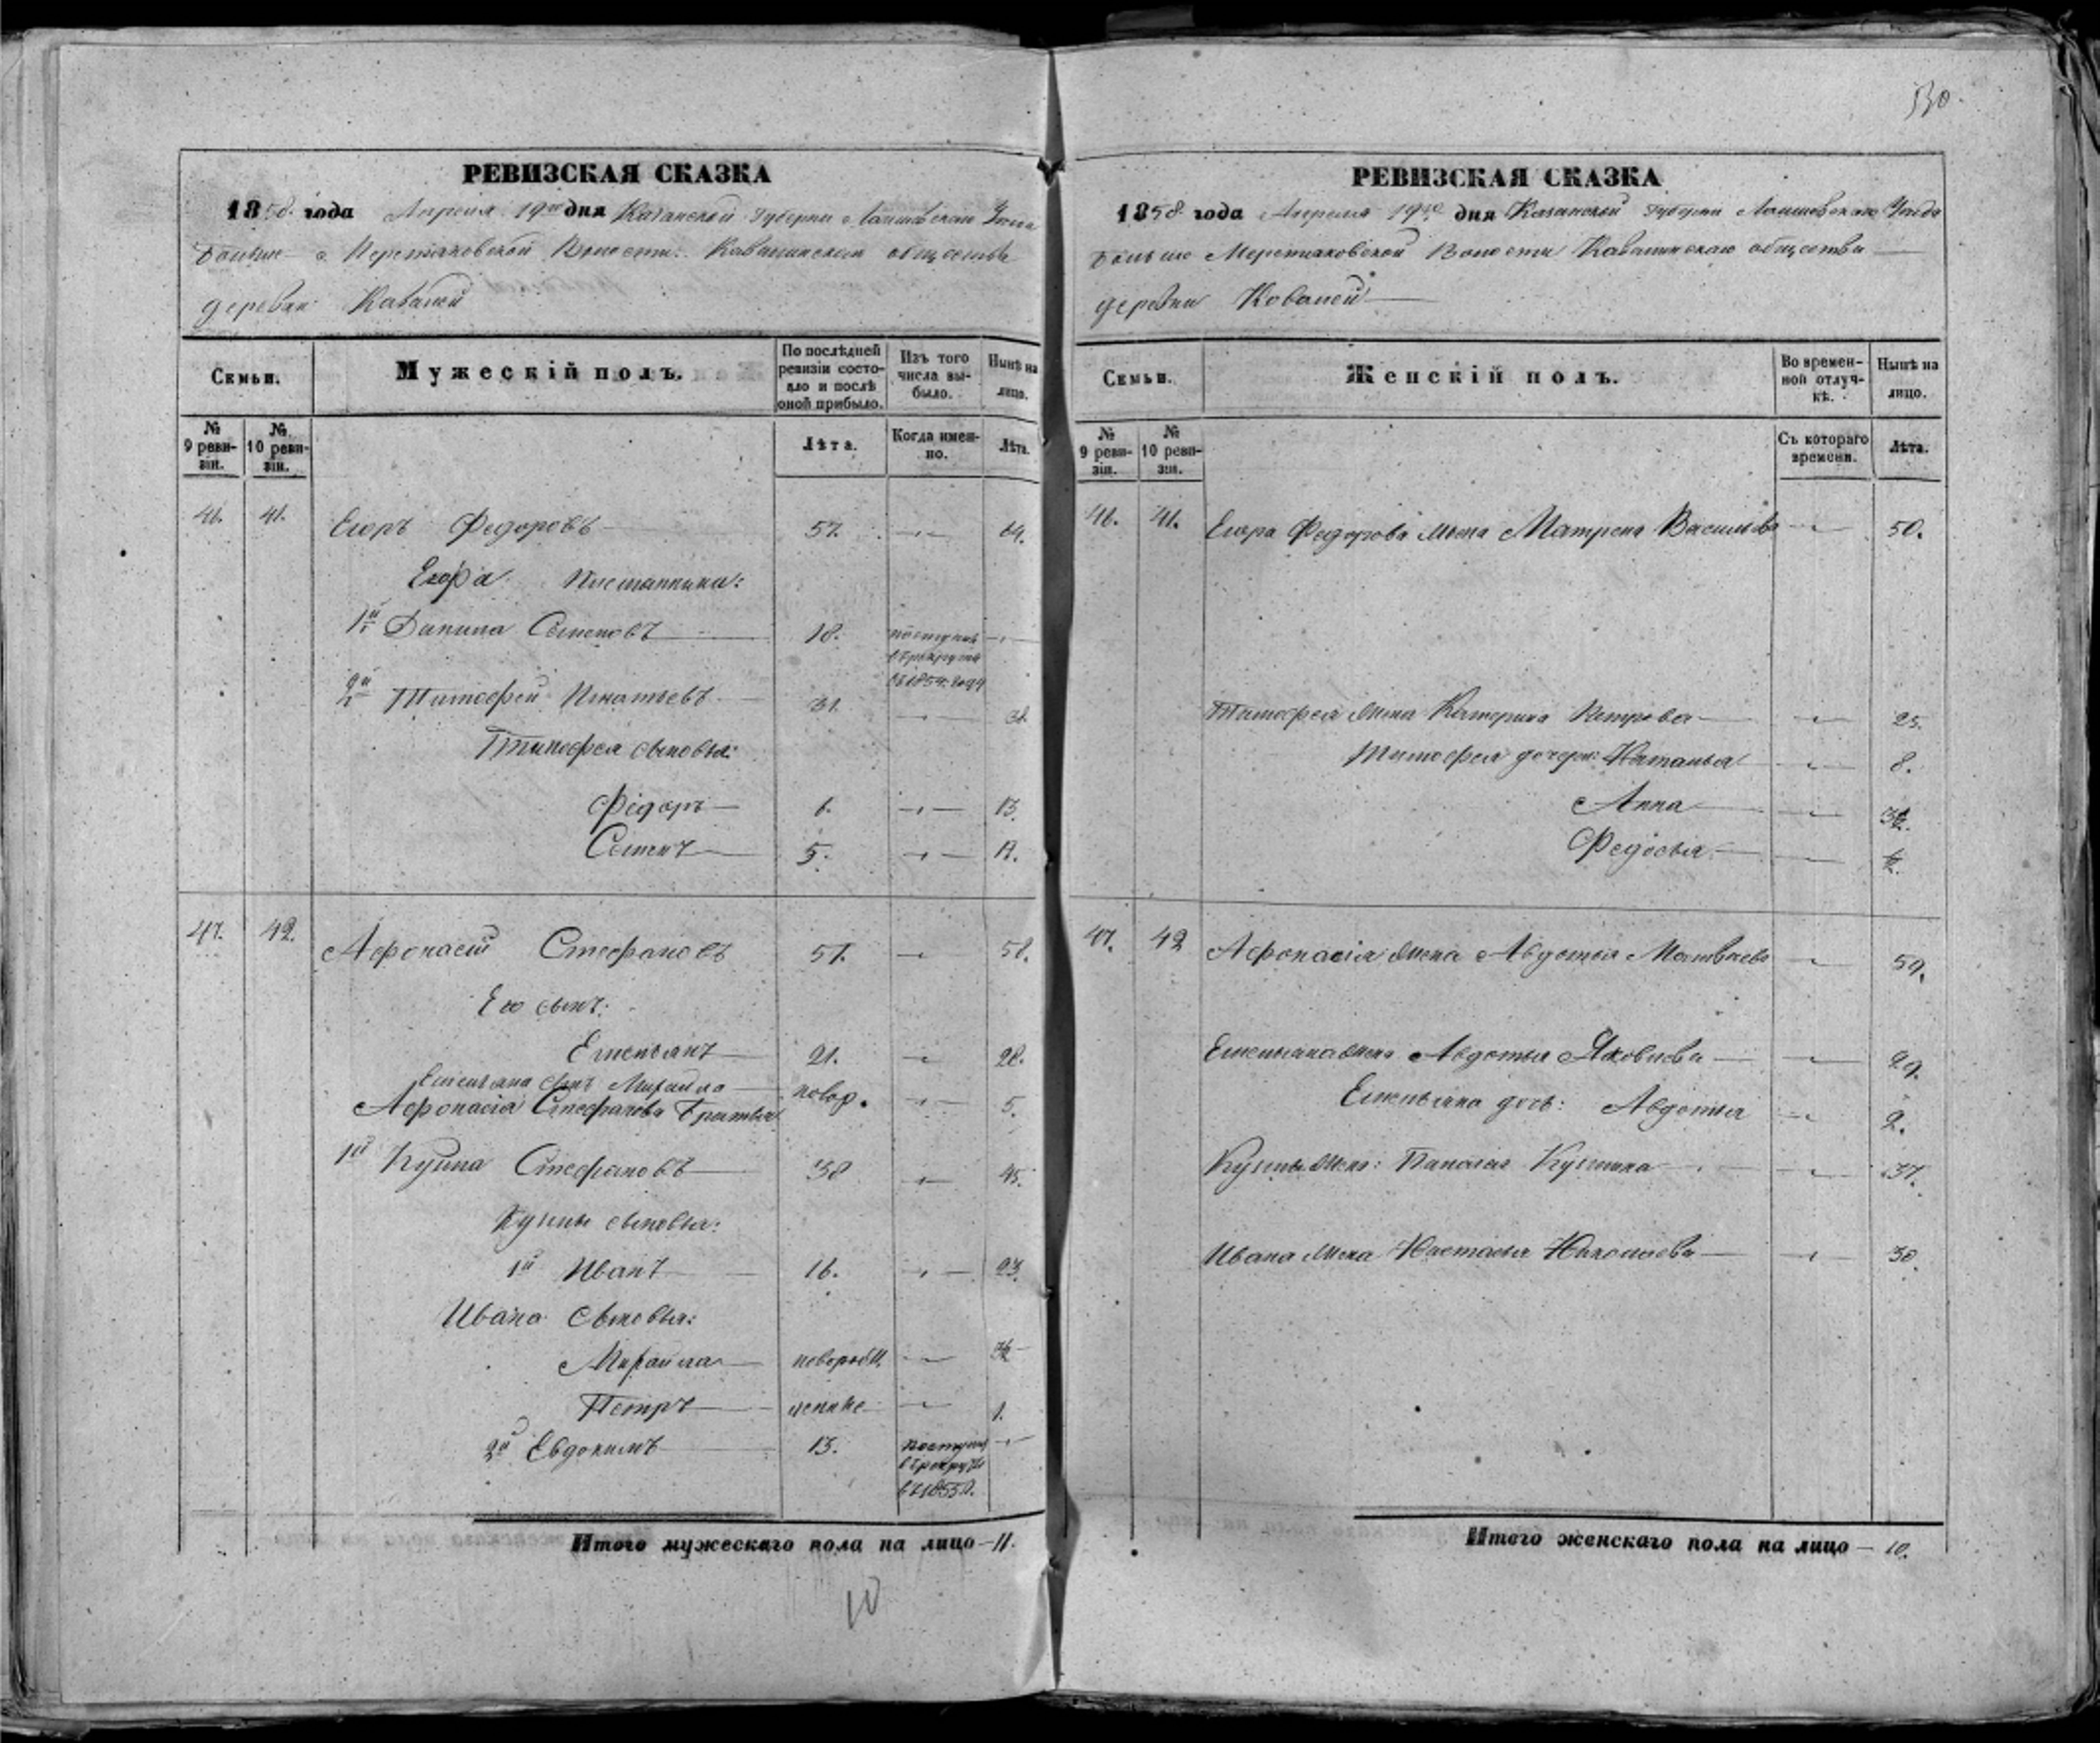 РЕВИЗСКАЯ СКАЗКА
1858 года Апреля 19го дня Казанской Губернии Лаишевскаго Уезда
Волости Кавалинскаго общества
деревни Кавалей
Семьи. Мужескій полъ. По послѣдней ревизіи состояло и послѣ оной прибыло. Изъ того числа выбыло. Нынѣ на лицо.
№ 9 ревизіи. № 10 ревизіи. Лѣта. Когда именно. Лѣта.
46. 41. Егоръ Федоровъ 57. 64.
Егора
1й Данила Семеновъ 18. поступилъ
въ рекруты
въ 1854 году
2й Тимофей Игнатьевъ 31. 38.
Тимофея сыновья:
Фёдоръ 6. 13.
Семенъ 5. 12.
47. 42. Афонасій Стефановъ 51. 58.
Его сынъ:
Емельянъ 21. 28.
Емельяна сынъ Михайло новор. 5.
Афонасія Стефанова Братья
1й Кузма Стефановъ 38 45.
Кузмы сыновья:
1й Иванъ 16. 23.
Ивана Сыновья:
Михайла новорожд.
Петръ 1.
2й Евдокимъ 13. поступилъ
въ рекруты
въ 1855 г.
Итого мужескаго пола на лицо 11.
10
530.
РЕВИЗСКАЯ СКАЗКА
1858 года Апреля 19го дня Казанской Губерніи Лаишевскаго Уезда
Волости Кавалинскаго общества
деревни Ковалей
Семьи. Женскій полъ. Во временной отлучкѣ. Нынѣ на лицо.
№ 9 ревизіи. № 10 ревизіи. Съ котораго времени. Лѣта.
46. 41. Егора Федорова жена Матрена Васильева 50.
Тимофея жена Катерина Петрова 25.
Тимофея дочери: Наталья 8.
Анна
Федосья
47. 42 Афонасія жена Авдотья Матвѣева 59.
Емельяна жена Авдотья Яковлева 29.
Емельяна дочь: Авдотья 2.
Кузмы жена: Кузмина 37.
Ивана жена Настасья Николаева 30.
Итого женскаго пола на лицо 10.